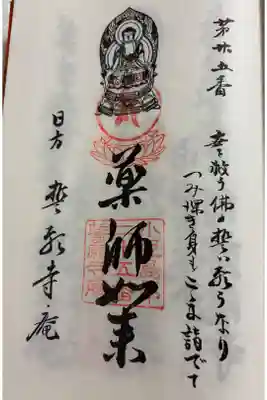 第廿五番
世を救う佛の誓い願うなり
つみ深き身もこゝに詣でて
薬師如来
日方 誓願寺庵